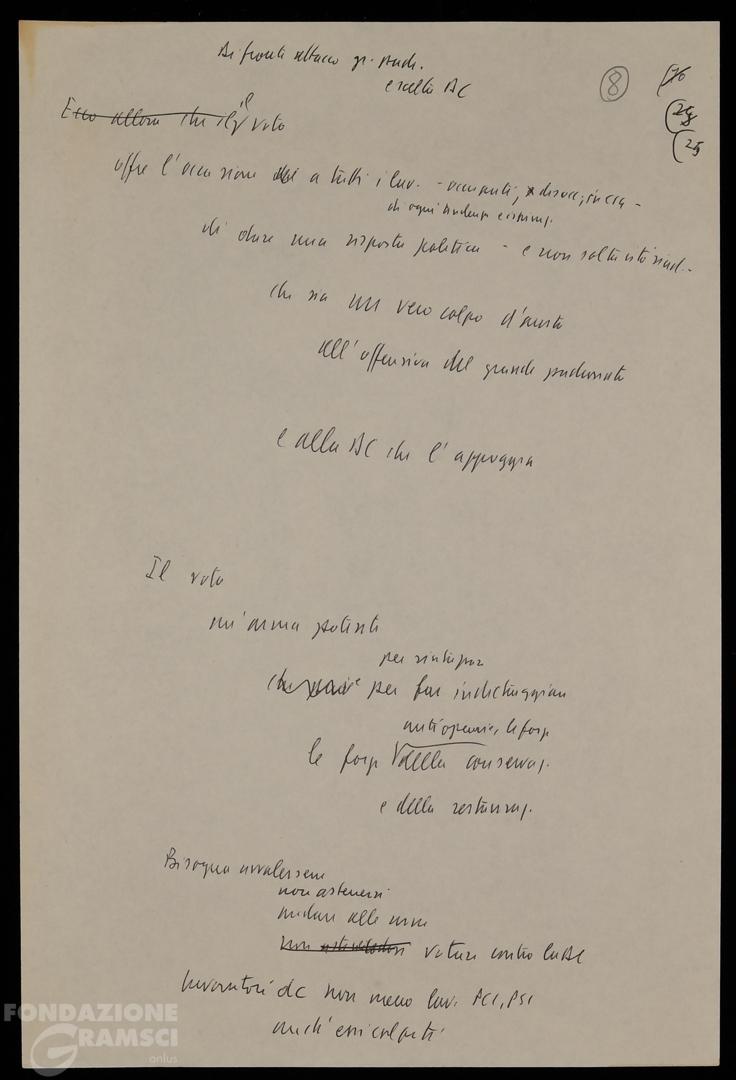 Di fronte attacco gr. padr.
e scelta DC
8
Ecco allora che il voto
il
offre l'occasione a tutti i lav. - occupanti, disocc., in cig -
di ogni tendenza e
di dare una risposta politica - e non soltanto sind. -
che sia un vero colpo d'arresto
all'offensiva del grande padronato
e alla DC che l'appoggia
Il voto
un'arma potente
per
per far indietreggiare
antioperaie, le forze
le forze della conservaz.
e della restauraz.
Bisogna avvalersene
non astenersi
andare alle urne
non votare contro la DC
Lavoratori dc non meno lav. PCI, PSI
anch'essi colpiti
FONDAZIONE
GRAMSCI
onlus